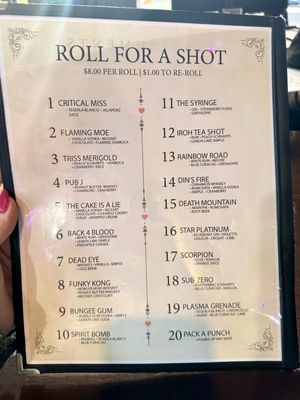 ROLL FOR A SHOT
$8.00 PER ROLL | $1.00 TO RE-ROLL
1 CRITICAL MISS
- TEQUILA BLANCO • JALAPENO
JUICE
2 FLAMING MOE
- VANILLA VODKA • MOZART
CHOCOLATE • FLAMING SAMBUCA
3 TRISS MERIGOLD
- PEACH SCHNAPPS •
CRANBERRY JUICE
4 PUB J
- PEANUT BUTTER WHISKEY
CHAMBORD • CRANBERRY
5 THE CAKE IS A LIE
- VODKA • MOZART
CHOCOLATE • LUXARDO CHERRY
SYRUP • WHIPPED CREAM
6 BACK 4 BLOOD
- WHITE RUM • GRENADINE
• LEMON LIME SIMPLE
• PINEAPPLE CHASER
7 DEAD EYE
- WHISKEY • VANILLA • SIMPLE
• COLD BREW
8 FUNKY KONG
- HOWLER HEAD WHISKEY •
PEANUT BUTTER WHISKEY
• MOZART CHOCOLATE
9 BUNGEE GUM
- BUBBLE GUM VODKA • SIMPLE
• LEMON LIME SODA
10 SPIRIT BOMB
- REDBULL • TEQUILA BLANCO
• BLUE CURACAO
11 THE SYRINGE
- GIN • STRAWBERRY PUREE
• GRENADINE
12 IROH TEA SHOT
- RUM • PEACH SCHNAPPS •
LEMON LIME SIMPLE
13 RAINBOW ROAD
- WHITE RUM • MIDORI •
BLUE CURACAO • GRENADINE
14 DIN'S FIRE
- CINNAMON WHISKEY
• RUMCHATA • VANILLA VODKA
• SIMPLE • CRANBERRY
15 DEATH MOUNTAIN
- ABSINTHE • RUMCHATA
ROOT BEER
16 STAR PLATINUM
LIQUEUR • LIME
17 SCORPION
ORANGE JUICE
18 SUB ZERO
- PEPPERMINT SCHNAPPS •
BLUE CURACAO
19 PLASMA GRENADE
- TEQUILA BLANCO •
AGAVE • BLUE CURACAO • LIME
20 PACK A PUNCH
- DOUBLE UP ANY SHOT